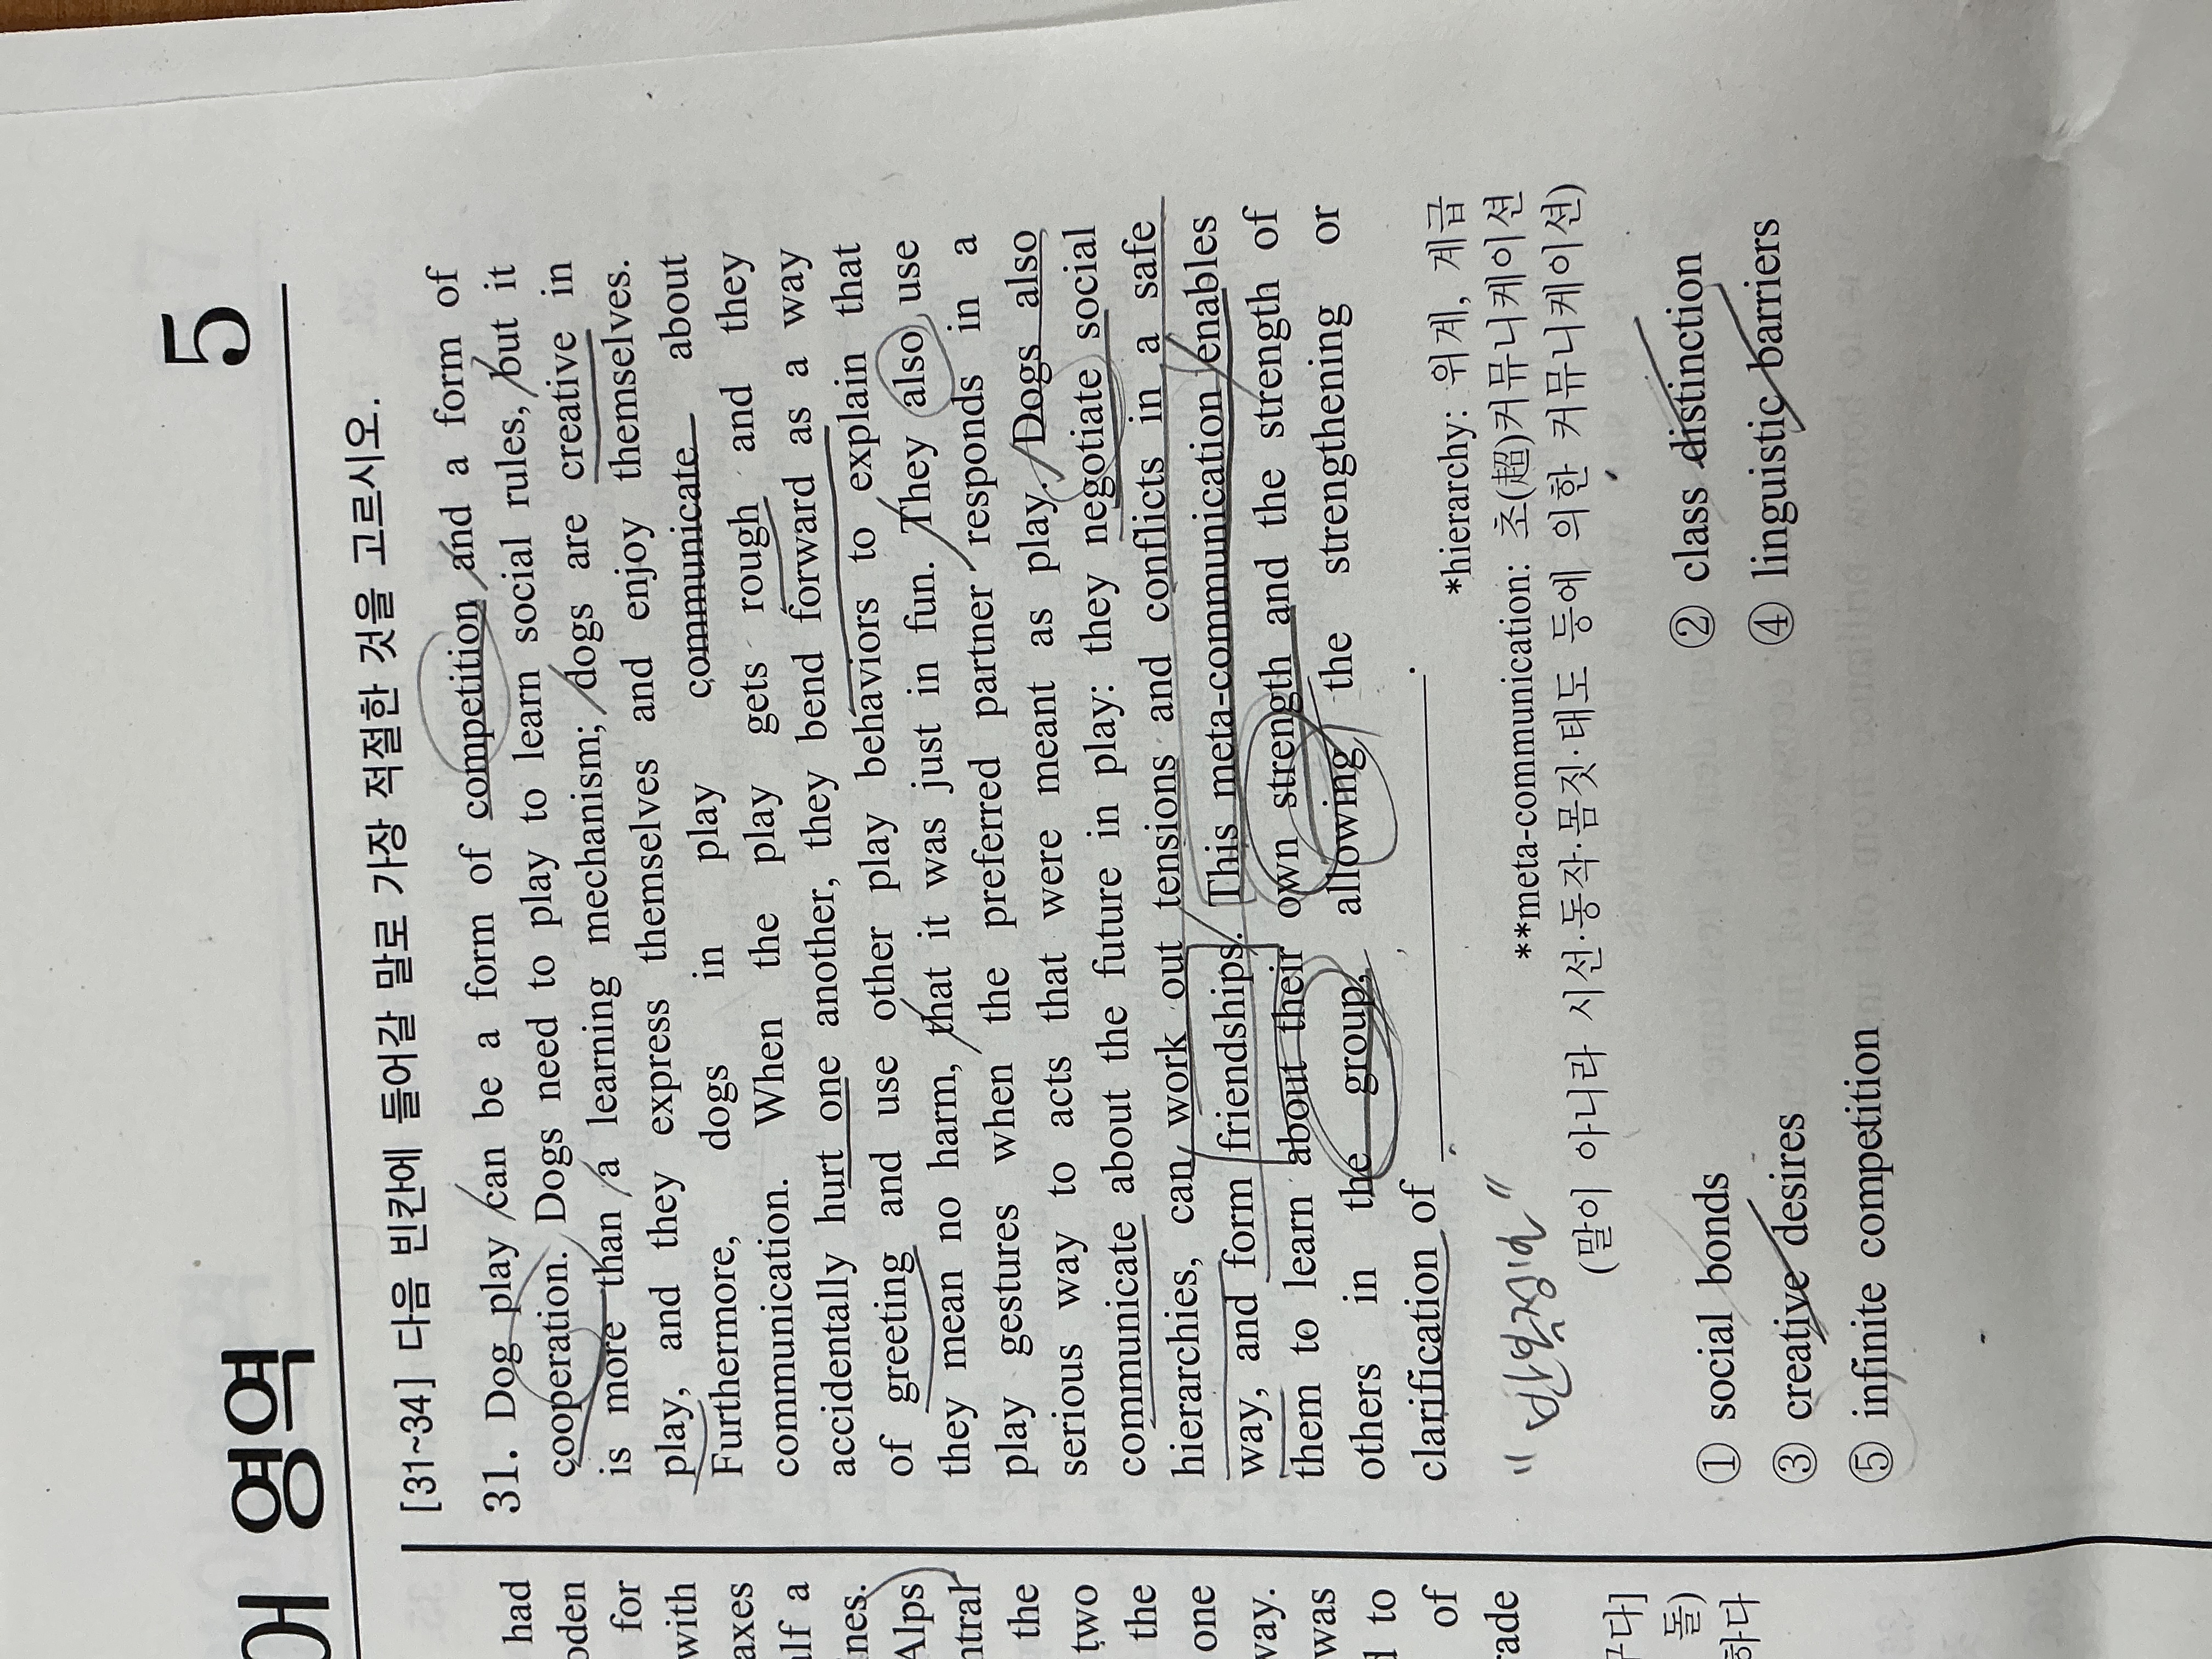 어 영역
5
[31~34] 다음 빈칸에 들어갈 말로 가장 적절한 것을 고르시오.
31. Dog play can be a form of competition and a form of
cooperation. Dogs need to play to learn social rules, but it
is more than a learning mechanism; dogs are creative in
play, and they express themselves and enjoy themselves.
Furthermore, dogs in play communicate about
communication. When the play gets rough and they
accidentally hurt one another, they bend forward as a way
of greeting and use other play behaviors to explain that
they mean no harm, that it was just in fun. They also use
play gestures when the preferred partner responds in a
serious way to acts that were meant as play. Dogs also
communicate about the future in play: they negotiate social
hierarchies, can work out tensions and conflicts in a safe
way, and form friendships. This meta-communication enables
them to learn about their own strength and the strength of
others in the group, allowing the strengthening or
clarification of .
*hierarchy: 위계, 계급
**meta-communication: 초(超)커뮤니케이션
(말이 아니라 시선·동작·몸짓·태도 등에 의한 커뮤니케이션)
① social bonds
② class distinction
③ creative desires
④ linguistic barriers
⑤ infinite competition
had
oden
for
with
axes
alf a
nes.
Alps
ntral
the
two
the
one
way.
was
d to
of
rade
구다]
돌)
하다